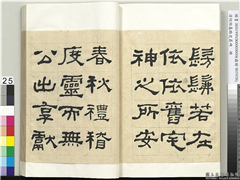 髣髴若在
依依舊宅
神之所安
春秋禮稽
度靈而無
公出享獻
25